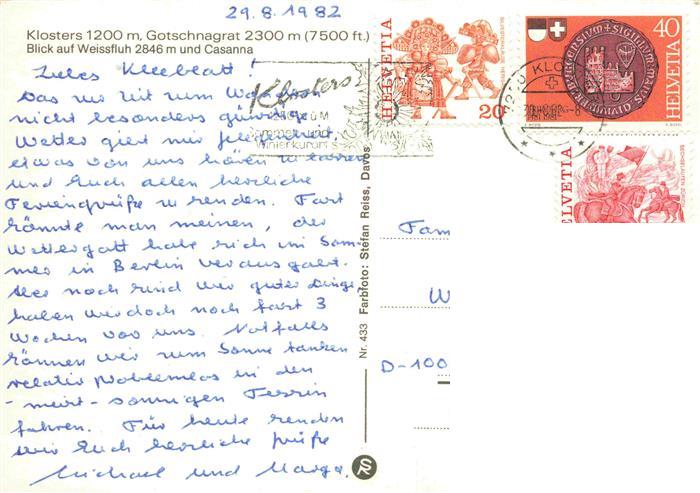 29.8.1982
Klosters 1200 m, Gotschnagrat 2300 m (7500 ft.)
Blick auf Weissfluh 2846 m und Casanna
Liebes Kleeblatt!
Das uns zeit zum Wandern
nicht besonders günstige
Wetter gibt mir Gelegenheit,
etwas von uns hören zu lassen
und Euch allen herzliche
Feriengrüße zu senden. Fast
könnte man meinen, der
Wettergott habe sich im Som-
mer in Berlin verausgabt.
Aber noch sind wir guter Dinge,
haben wir doch noch fast 3
Wochen vor uns. Notfalls
können wir zum Sonne tanken
relativ problemlos in den
- meist - sonnigen Tessin
fahren. Für heute senden
wir Euch herzliche Grüße
Michael und Marga.
Klosters
Sommer- und
Winterkurort
HELVETIA
20
HELVETIA 40
7250 KLO
HELVETIA
Nr. 433 Farbfoto: Stefan Reiss, Davos
Fam
W
D-100